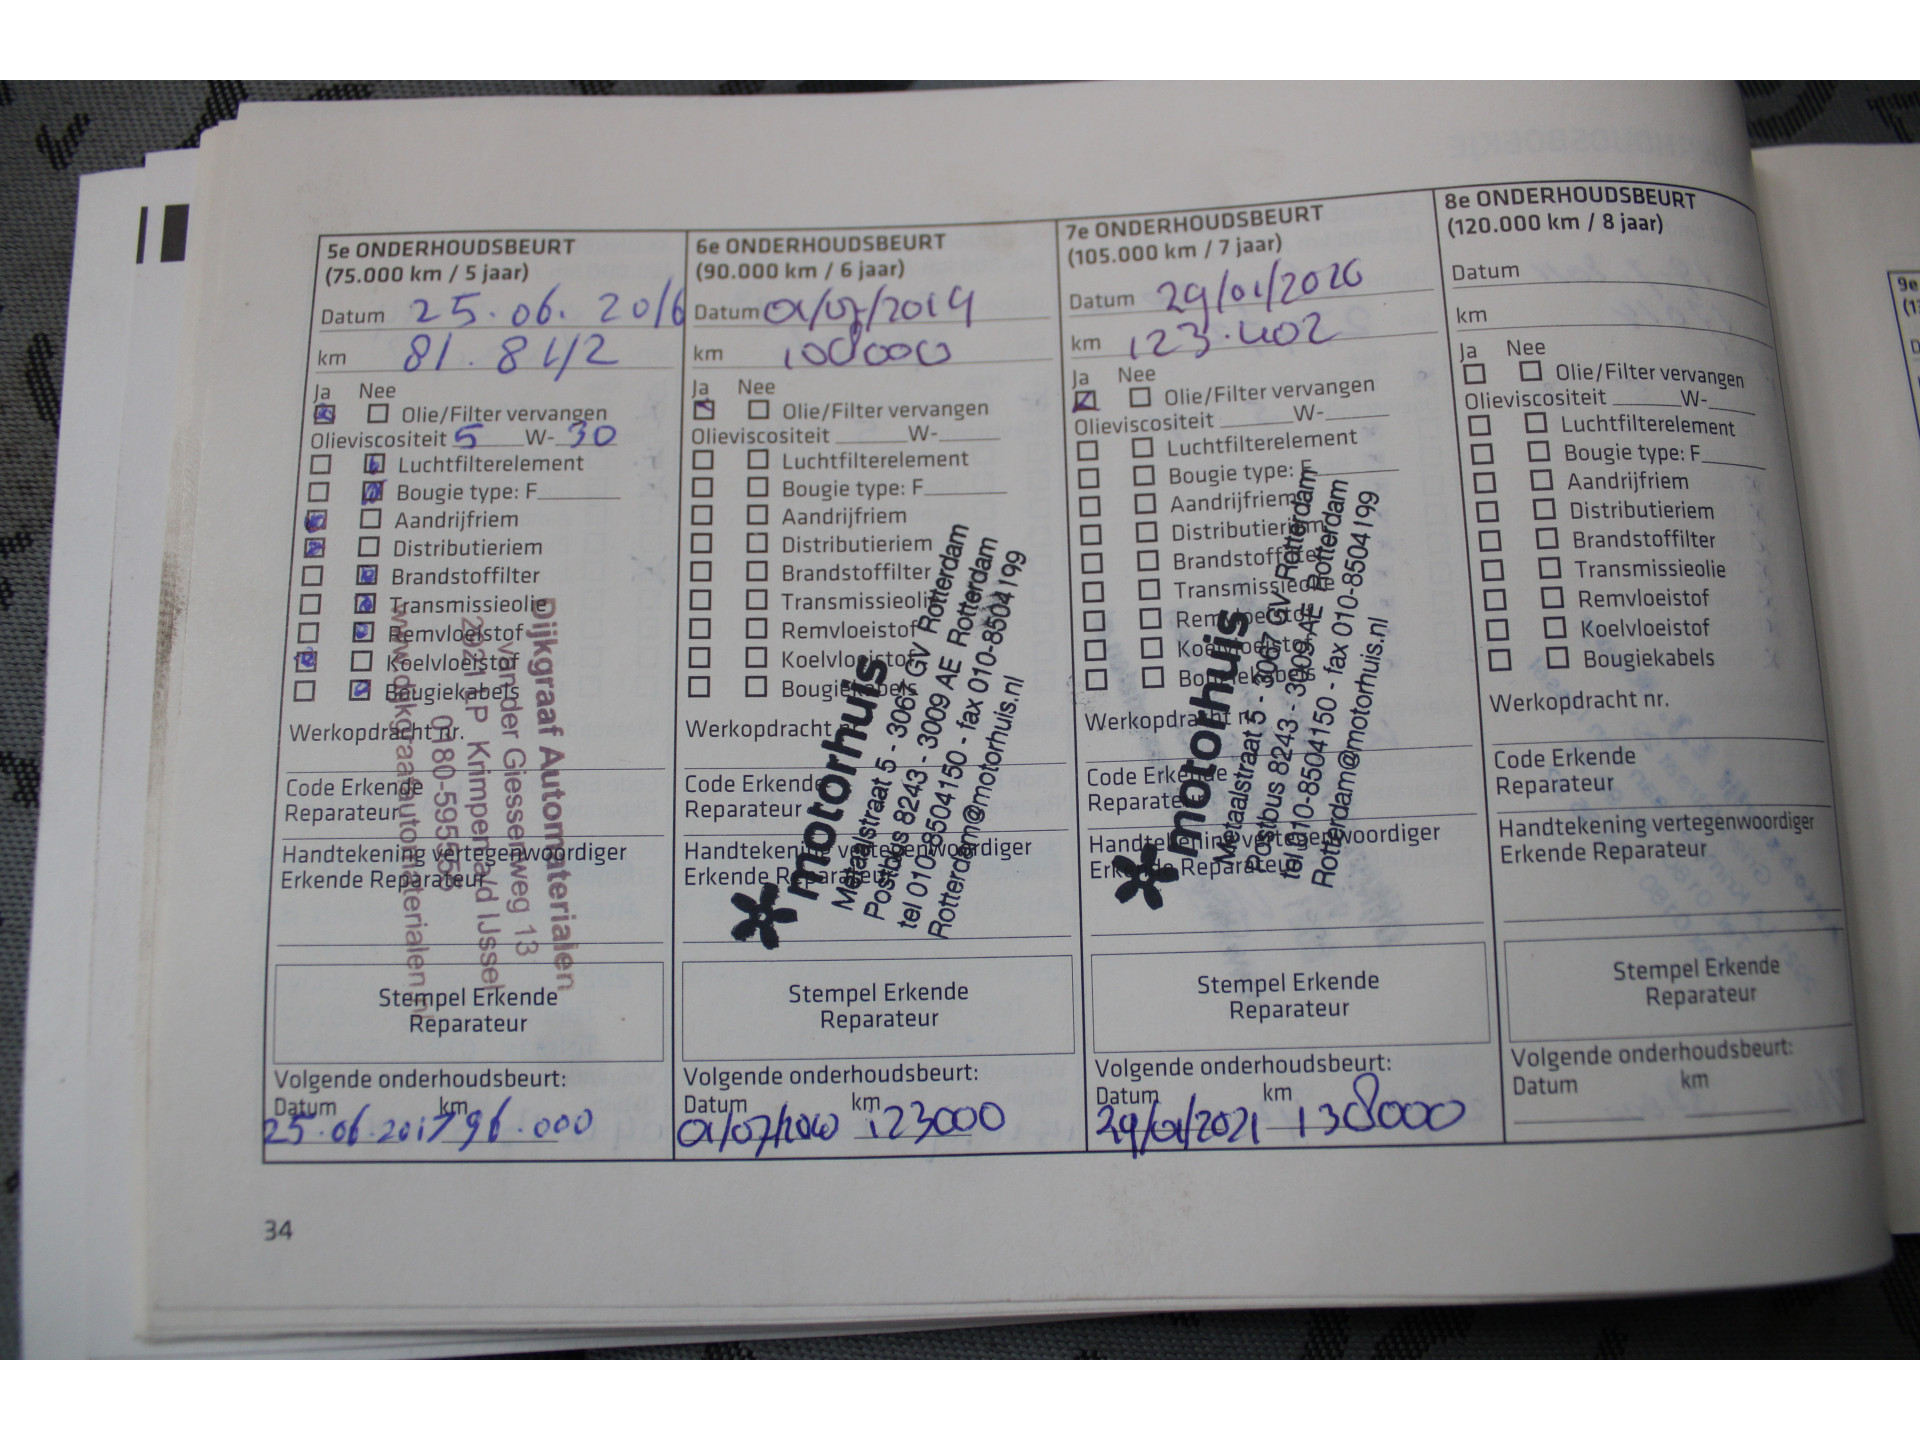 5e ONDERHOUDSBEURT
(75.000 km / 5 jaar)
Datum 25.06.2016
km 81.812
Ja Nee
Olie/Filter vervangen
Olieviscositeit 5 W-30
Luchtfilterelement
Bougie type: F
Aandrijfriem
Distributieriem
Brandstoffilter
Transmissieolie
Remvloeistof
Koelvloeistof
Bougiekabels
Werkopdracht nr.
Code Erkende
Reparateur
Handtekening vertegenwoordiger
Erkende Reparateur
Dijkgraaf Automaterialen
van der Giessenweg 13
2921 LP Krimpen a/d IJssel
www.dijkgraafautomaterialen.nl
Stempel Erkende
Reparateur
Volgende onderhoudsbeurt:
Datum km
25.06.2017 96.000
6e ONDERHOUDSBEURT
(90.000 km / 6 jaar)
Datum 01/07/2019
km 108000
Ja Nee
Olie/Filter vervangen
Olieviscositeit W-
Luchtfilterelement
Bougie type: F
Aandrijfriem
Distributieriem
Brandstoffilter
Transmissieolie
Remvloeistof
Koelvloeistof
Bougiekabels
Werkopdracht nr.
Code Erkende
Reparateur
Handtekening vertegenwoordiger
Erkende Reparateur
motorhuis
Metaalstraat 5 - 3067 GV Rotterdam
Postbus 8243 - 3009 AE Rotterdam
tel 010-8504150 - fax 010-8504199
Rotterdam@motorhuis.nl
Stempel Erkende
Reparateur
Volgende onderhoudsbeurt:
Datum km
01/07/2020 123000
7e ONDERHOUDSBEURT
(105.000 km / 7 jaar)
Datum 29/01/2020
km 123.402
Ja Nee
Olie/Filter vervangen
Olieviscositeit W-
Luchtfilterelement
Bougie type: F
Aandrijfriem
Distributieriem
Brandstoffilter
Transmissieolie
Remvloeistof
Koelvloeistof
Bougiekabels
Werkopdracht nr.
Code Erkende
Reparateur
Handtekening vertegenwoordiger
Erkende Reparateur
motorhuis
Metaalstraat 5 - 3067 GV Rotterdam
Postbus 8243 - 3009 AE Rotterdam
tel 010-8504150 - fax 010-8504199
Rotterdam@motorhuis.nl
Stempel Erkende
Reparateur
Volgende onderhoudsbeurt:
Datum km
29/01/2021 138000
8e ONDERHOUDSBEURT
(120.000 km / 8 jaar)
Datum
km
Ja Nee
Olie/Filter vervangen
Olieviscositeit W-
Luchtfilterelement
Bougie type: F
Aandrijfriem
Distributieriem
Brandstoffilter
Transmissieolie
Remvloeistof
Koelvloeistof
Bougiekabels
Werkopdracht nr.
Code Erkende
Reparateur
Handtekening vertegenwoordiger
Erkende Reparateur
Stempel Erkende
Reparateur
Volgende onderhoudsbeurt:
Datum km
9e
34